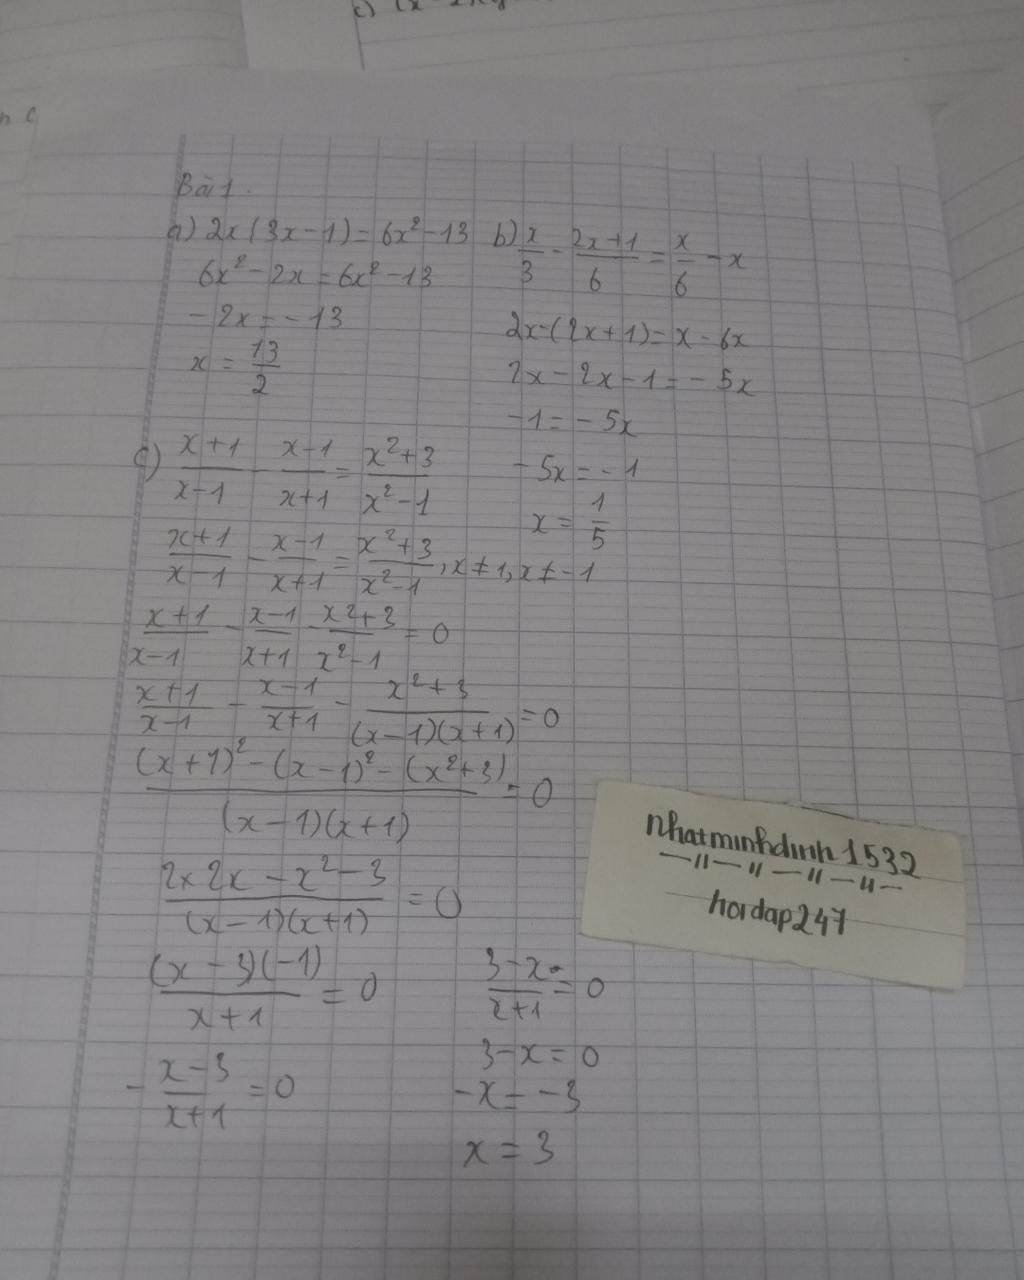 Bài 1.
a) 2x(3x-1) = 6x² - 13
6x² - 2x = 6x² - 13
-2x = -13
x = 13/2
b) x/3 - (2x+1)/6 = x/6 - x
2x-(2x+1) = x - 6x
2x - 2x - 1 = -5x
-1 = -5x
-5x = -1
x = 1/5
c) (x+1)/(x-1) - (x-1)/(x+1) = (x²+3)/(x²-1)
(x+1)/(x-1) - (x-1)/(x+1) = (x²+3)/(x²-1), x ≠ 1, x ≠ -1
(x+1)/(x-1) - (x-1)/(x+1) - (x²+3)/(x²-1) = 0
(x+1)/(x-1) - (x-1)/(x+1) - (x²+3)/((x-1)(x+1)) = 0
((x+1)² - (x-1)² - (x²+3))/((x-1)(x+1)) = 0
(2x 2x - x² - 3)/((x-1)(x+1)) = 0
((x-3)(-1))/(x+1) = 0
- (x-3)/(x+1) = 0
(3-x)/(x+1) = 0
3-x = 0
-x = -3
x = 3
nhatminhdinh1532
hoidap247